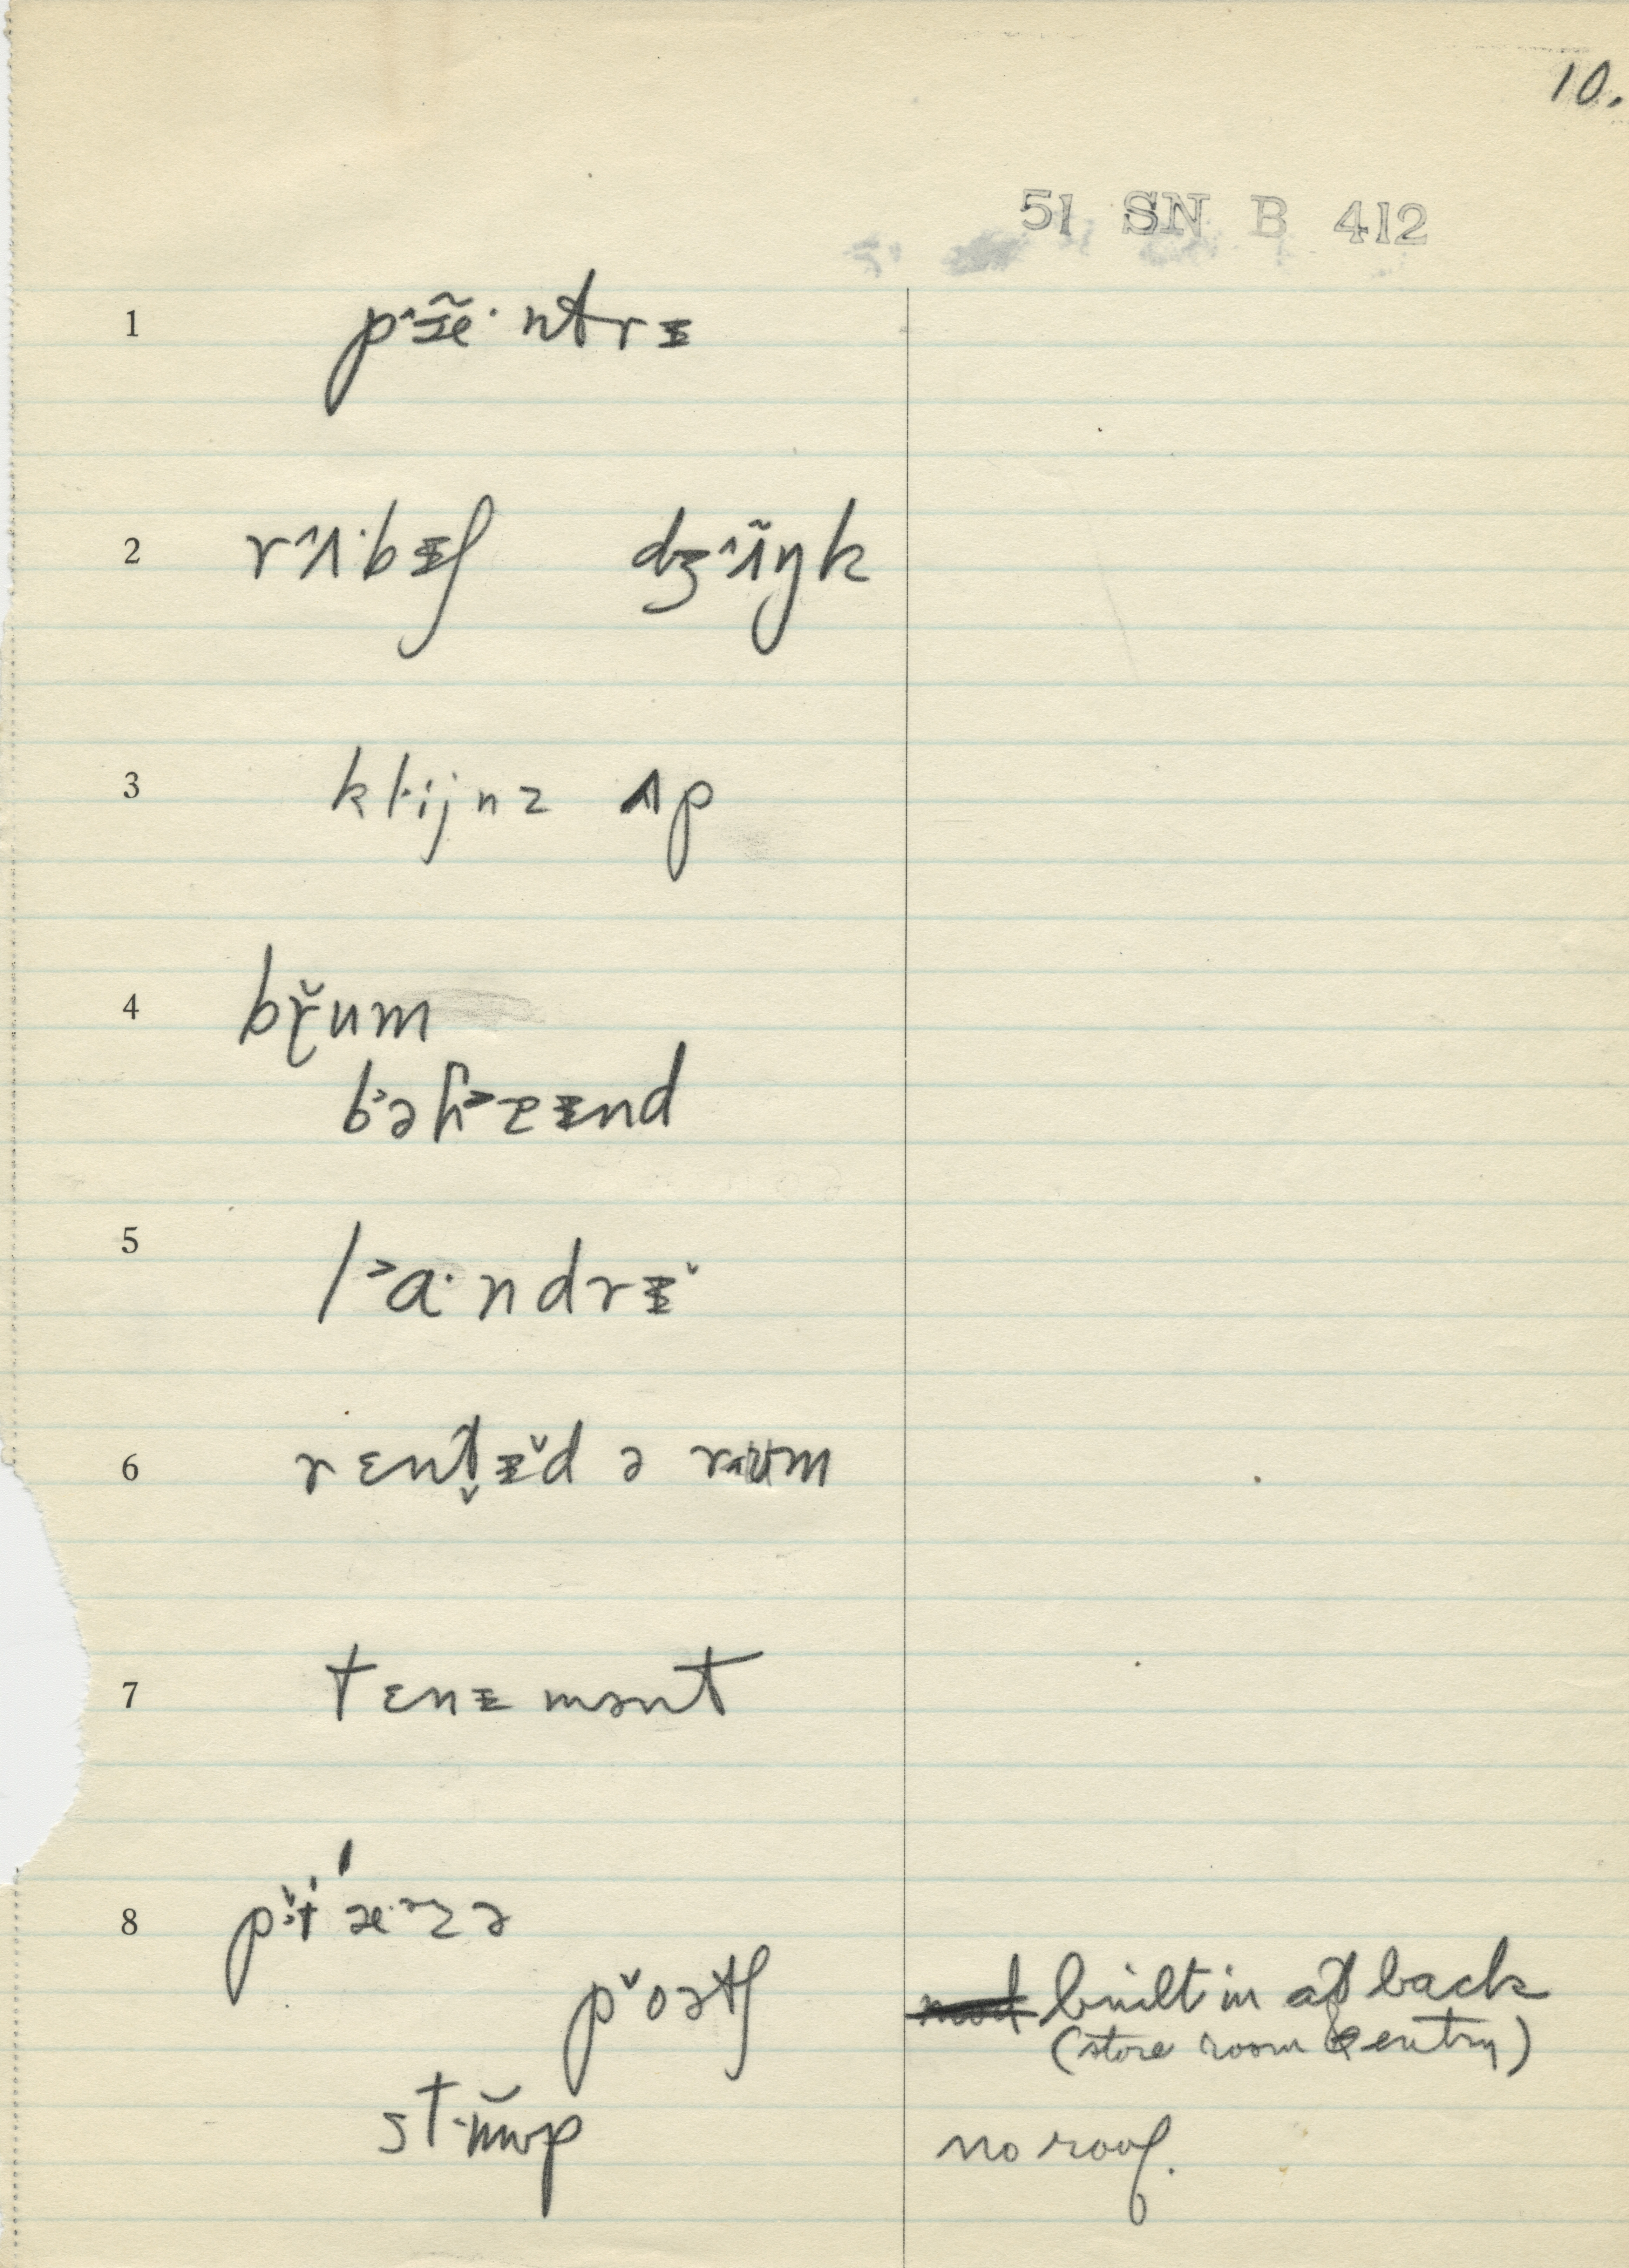 10.
51 SN B 412
1 pˆæ̃· ntrɪ
2 rˆʌ·bɪʃ dʒˆʌ̃ŋk
3 kl·ijnz ʌp
4 bř̥um
b˃əɦ˃ɪnd
5 l˃a·ndrɪ̌
6 rɛnt̬ɪ̌d ə rʊum
7 tɛnɪmənt
8 pɪ̌ˈæ·zə
p̌oətʃ built in at back
(store room & entry)
st·ŭwp no roof.